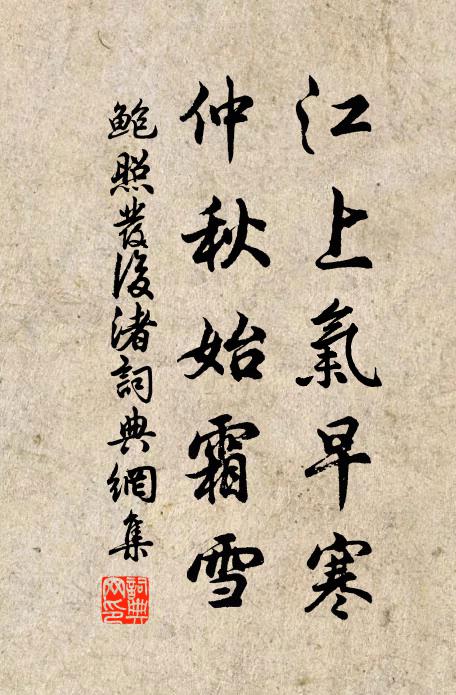 江上氣早寒
仲秋始霜雪
鮑照發後渚詞典網集
詞典網印